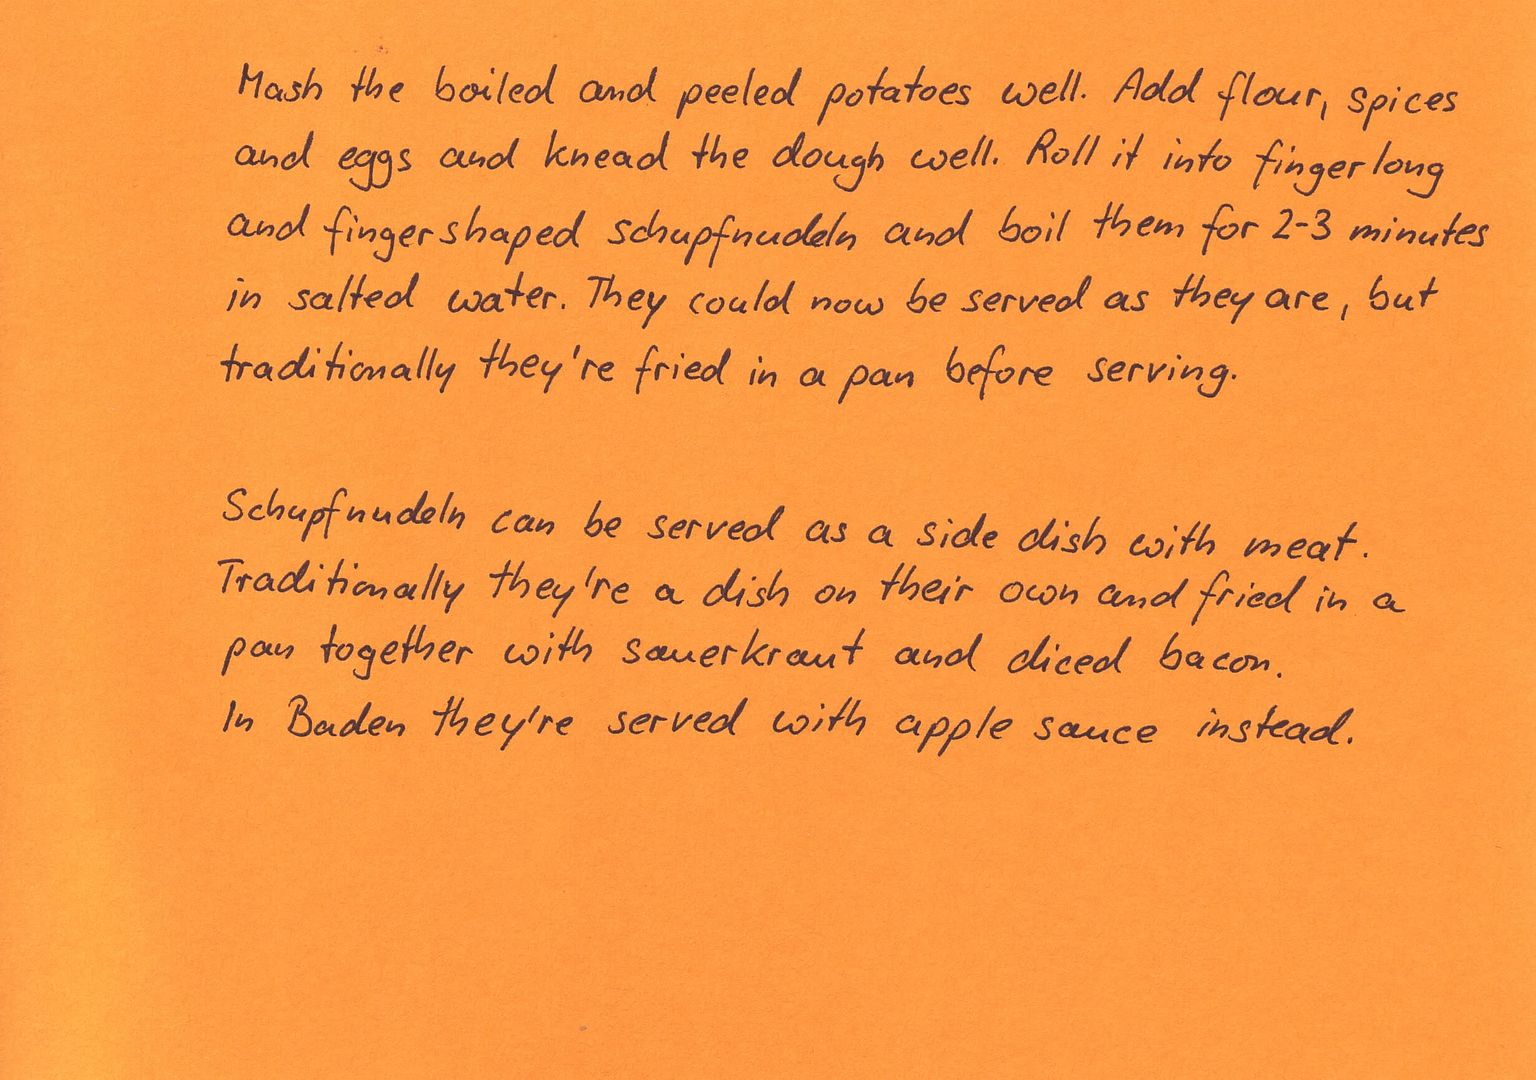 Mash the boiled and peeled potatoes well. Add flour, spices
and eggs and knead the dough well. Roll it into fingerlong
and fingershaped schupfnudeln and boil them for 2-3 minutes
in salted water. They could now be served as they are, but
traditionally they're fried in a pan before serving.
Schupfnudeln can be served as a side dish with meat.
Traditionally they're a dish on their own and fried in a
pan together with sauerkraut and diced bacon.
In Baden they're served with apple sauce instead.